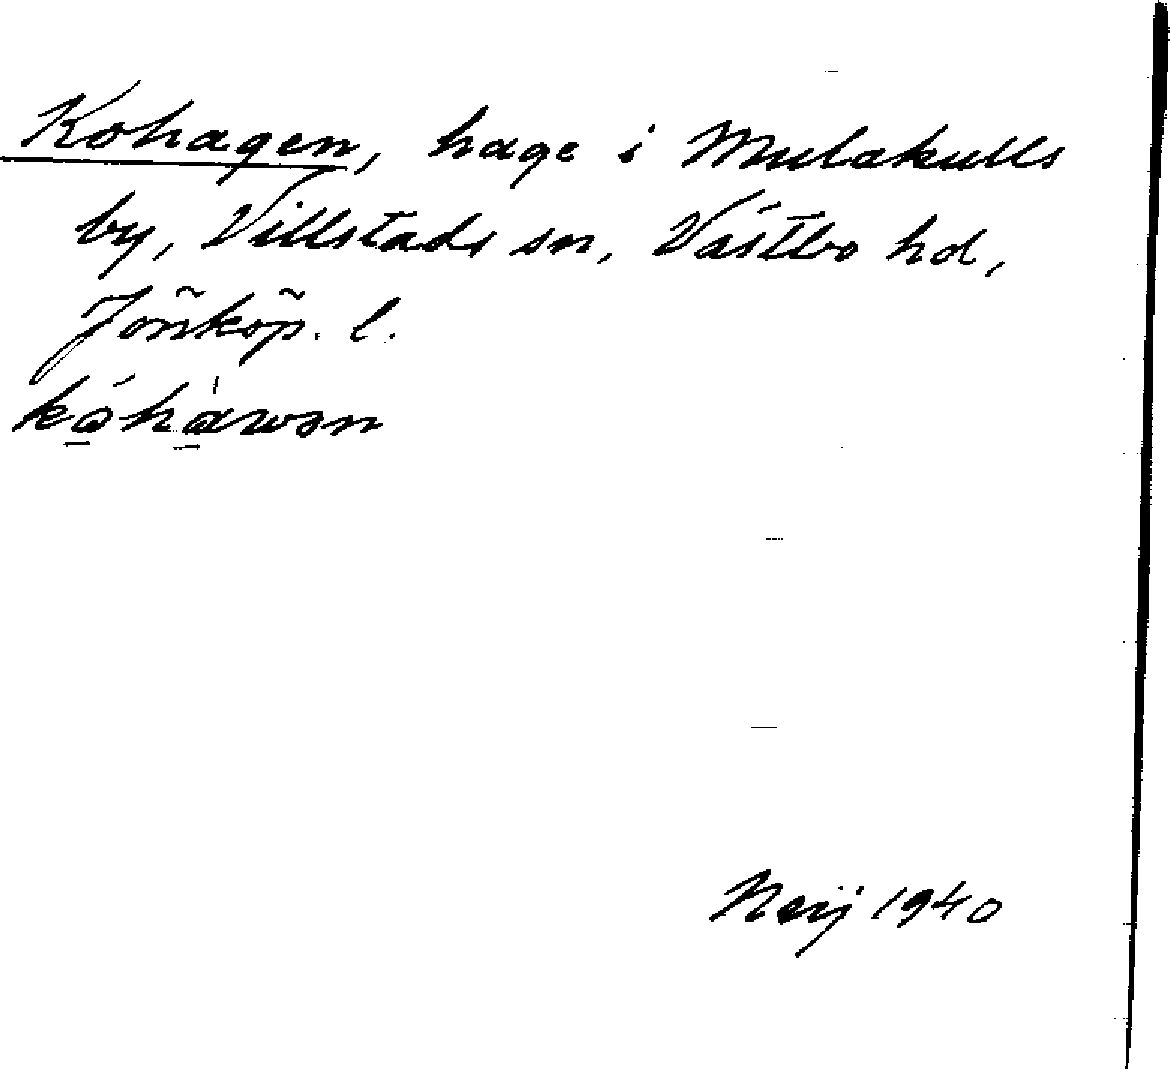 Kohagen, hage i Mulakulls
by, Villstads sn, Västbo hd,
Jönköp. l.
kóhàwən
Neij 1940